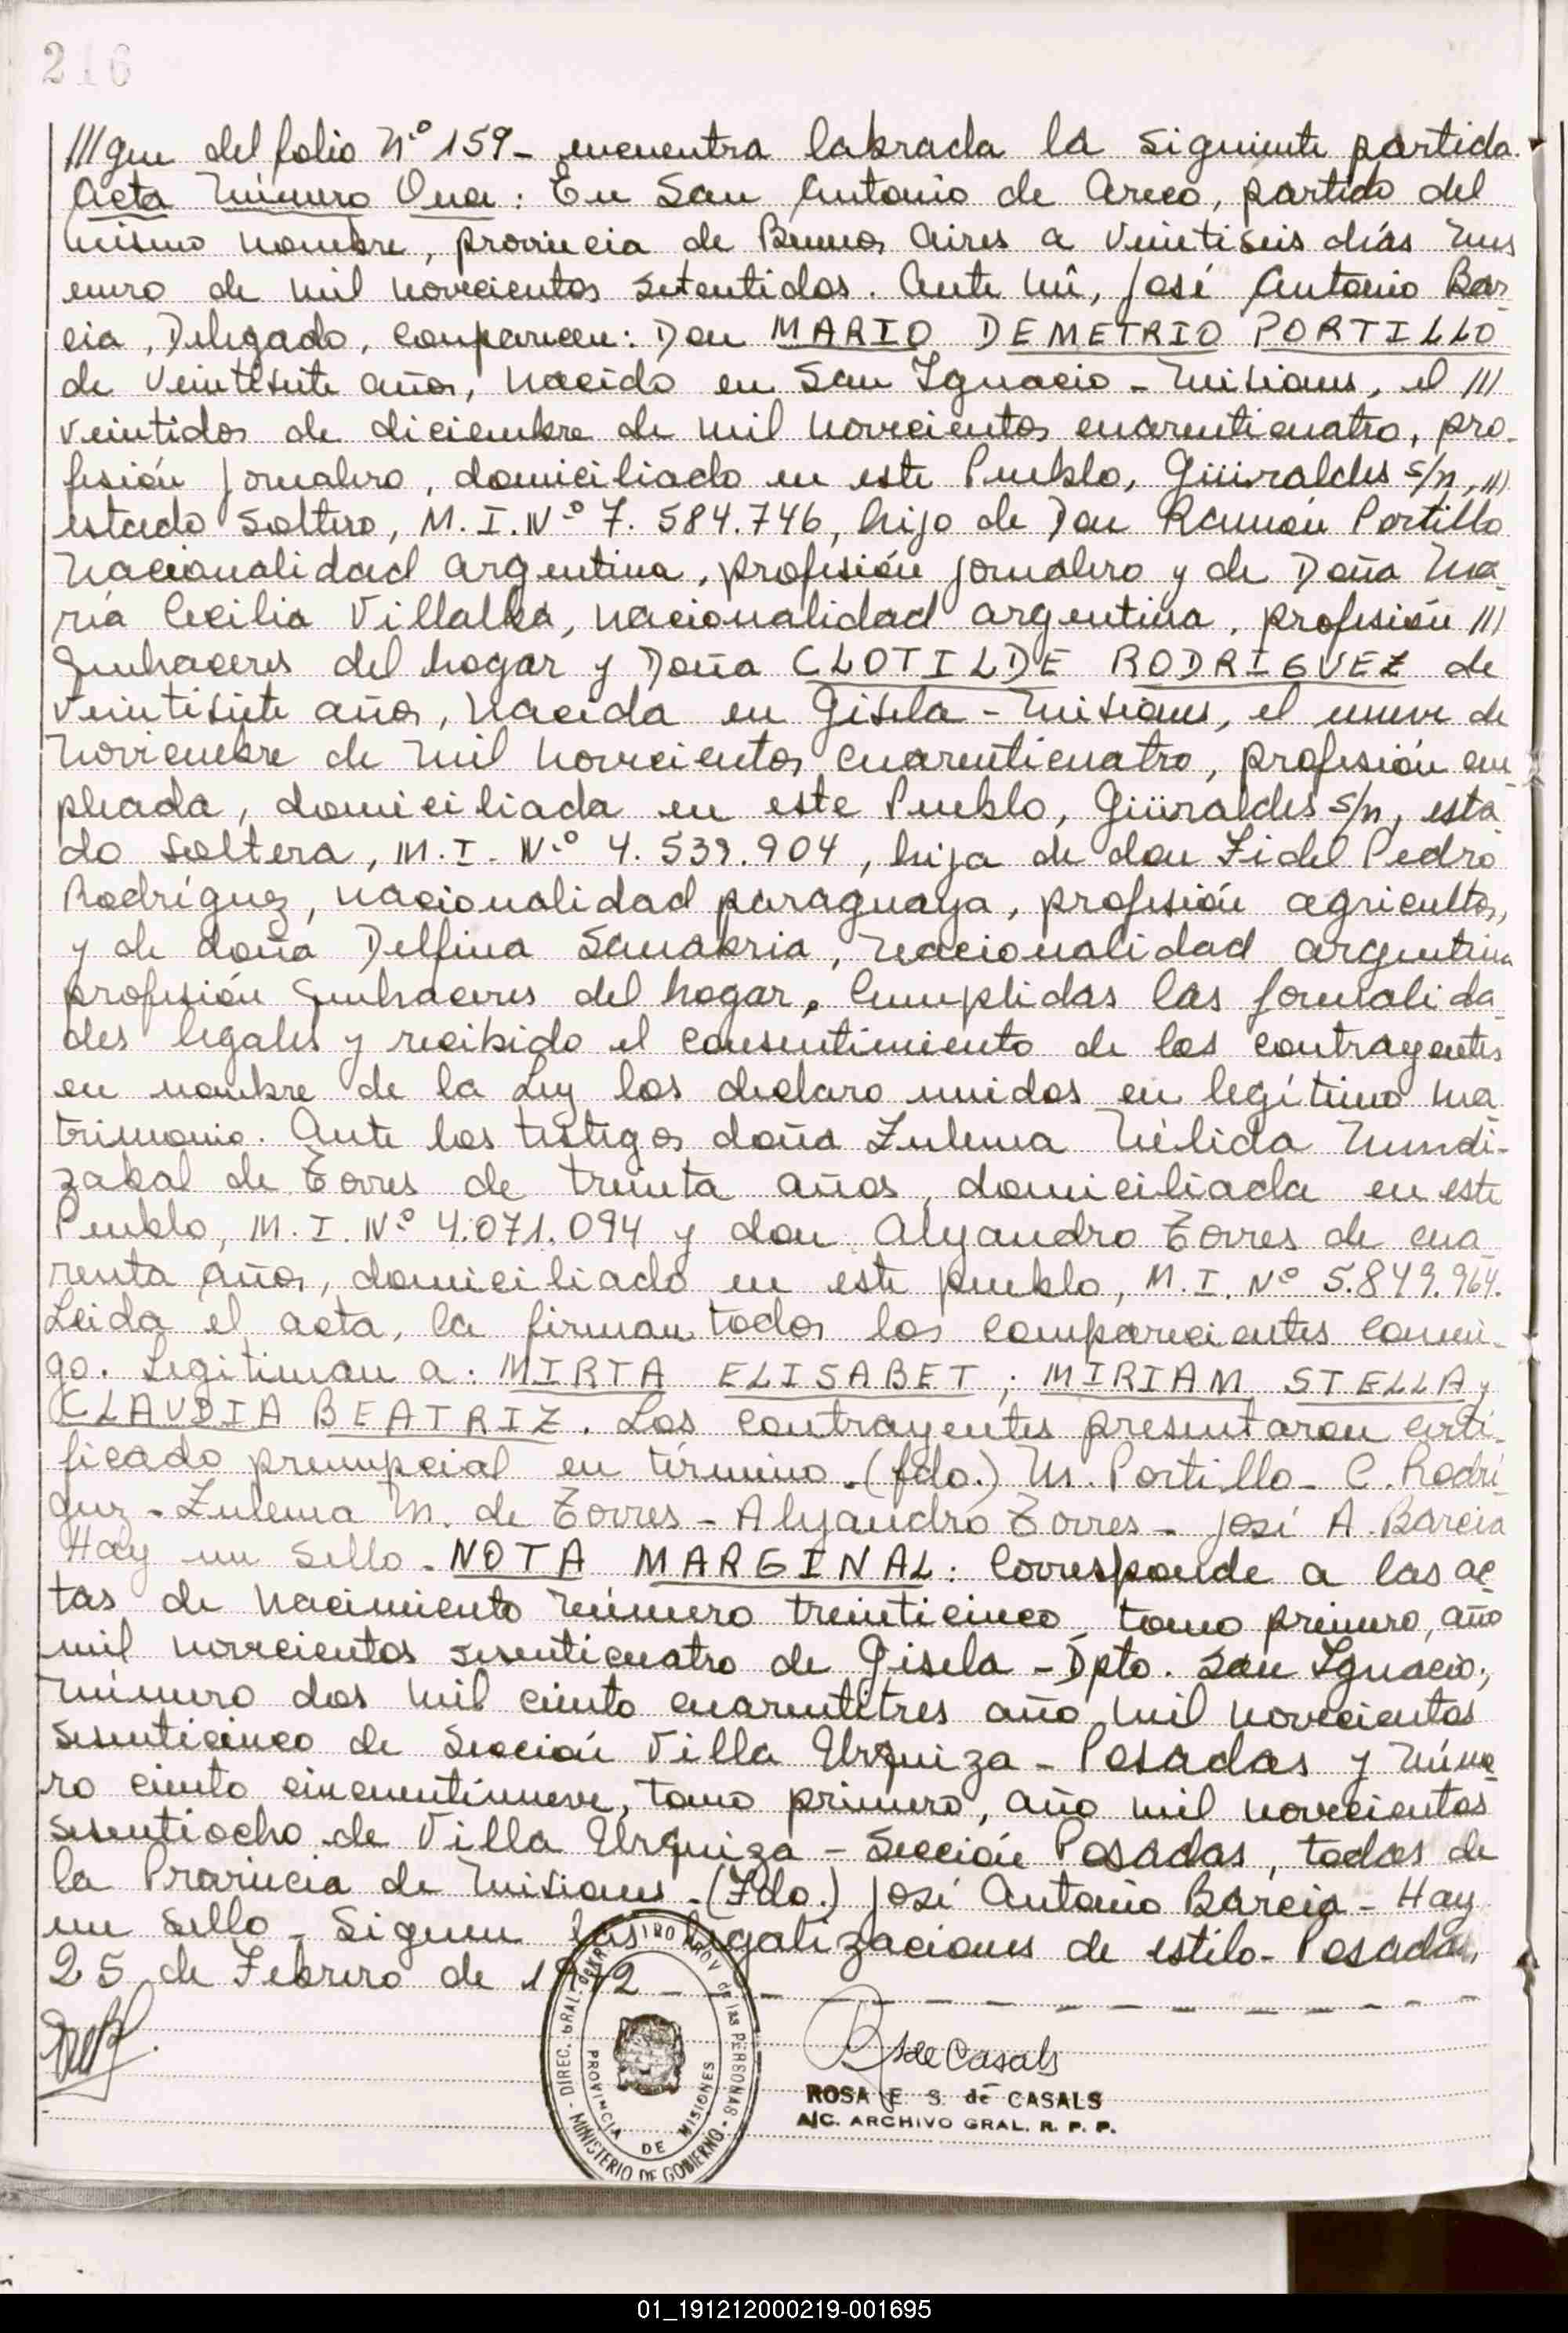 216
///gen del folio N.º 159 - encuentra labrada la siguiente partida.
Acta Número Once: En San Antonio de Areco, partido del
mismo nombre, provincia de Buenos Aires a veintiseis días mes
enero de mil novecientos setentidos. Ante mí, José Antonio Bar
cia, Delegado, comparecen: Don MARIO DEMETRIO PORTILLO
de veintisiete años, nacido en San Ignacio - Misiones, el ///
veintidos de diciembre de mil novecientos cuarenticuatro, pro-
fesión jornalero, domiciliado en este Pueblo, Güiraldes s/n, ///
estado soltero, M. I. Nº 7.584.746, hijo de Don Ramón Portillo
nacionalidad argentina, profesión jornalero y de Doña Ma-
ría Cecilia Villalba, nacionalidad argentina, profesión ///
Quehaceres del hogar y Doña CLOTILDE RODRIGUEZ de
veintisiete años, nacida en Gisela - Misiones, el nueve de
Noviembre de mil novecientos cuarenticuatro, profesión em
pleada, domiciliada en este Pueblo, Güiraldes s/n, esta
do soltera, M. I. N.º 4.539.904, hija de don Fidel Pedro
Rodríguez, nacionalidad paraguaya, profesión agricultor,
y de doña Delfina Sanabria, nacionalidad argentina
profesión Quehaceres del hogar. Cumplidas las formalida-
des legales y recibido el consentimiento de los contrayentes
en nombre de la Ley los declaro unidos en legítimo ma-
trimonio. Ante los testigos doña Zulema Nélida Mendi-
zabal de Torres de treinta años, domiciliada en este
Pueblo, M. I. Nº 4.071.094 y don Alejandro Torres de cua
renta años, domiciliado en este pueblo, M. I. Nº 5.849.964.
Leida el acta, la firman todos los comparecientes conmi-
go. Legitiman a: MIRTA ELISABET; MIRIAM STELLA y
CLAUDIA BEATRIZ. Los contrayentes presentaron certi-
ficado prenupcial en término. (fdo.) M. Portillo - C. Rodrí
guez - Zulema M. de Torres - Alejandro Torres - José A. Barcia
Hay un sello - NOTA MARGINAL: Corresponde a las ac
tas de nacimiento número treinticinco, tomo primero, año
mil novecientos sesenticuatro de Gisela - Dpto. San Ignacio;
número dos mil ciento cuarentitres año mil novecientos
sesenticinco de Sección Villa Urquiza - Posadas y núme
ro ciento cincuentinueve, tomo primero, año mil novecientos
sesentiocho de Villa Urquiza - Sección Posadas, todas de
la Provincia de Misiones - (Fdo.) José Antonio Barcia - Hay
un sello - Siguen las legalizaciones de estilo - Posadas,
25 de Febrero de 1972 - - - - - - - - -
PROV de las PERSONAS - MINISTERIO DE GOBIERNO - DIREC. GRAL.
PROVINCIA DE MISIONES
R S de Casals
ROSA E. S. de CASALS
A/C. ARCHIVO GRAL. R. P. P.
01_191212000219-001695